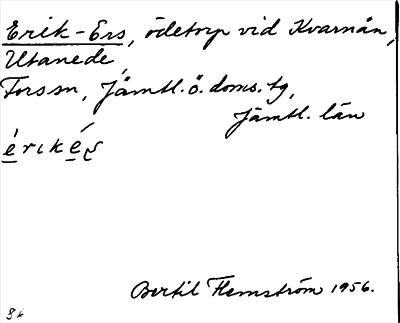 Erik-Ers, ödetorp vid Kvarnån,
Utanede,
Forssn, Jämtl. ö. doms. tg,
Jämtl. län
érikés
Bertil Flemström 1956.